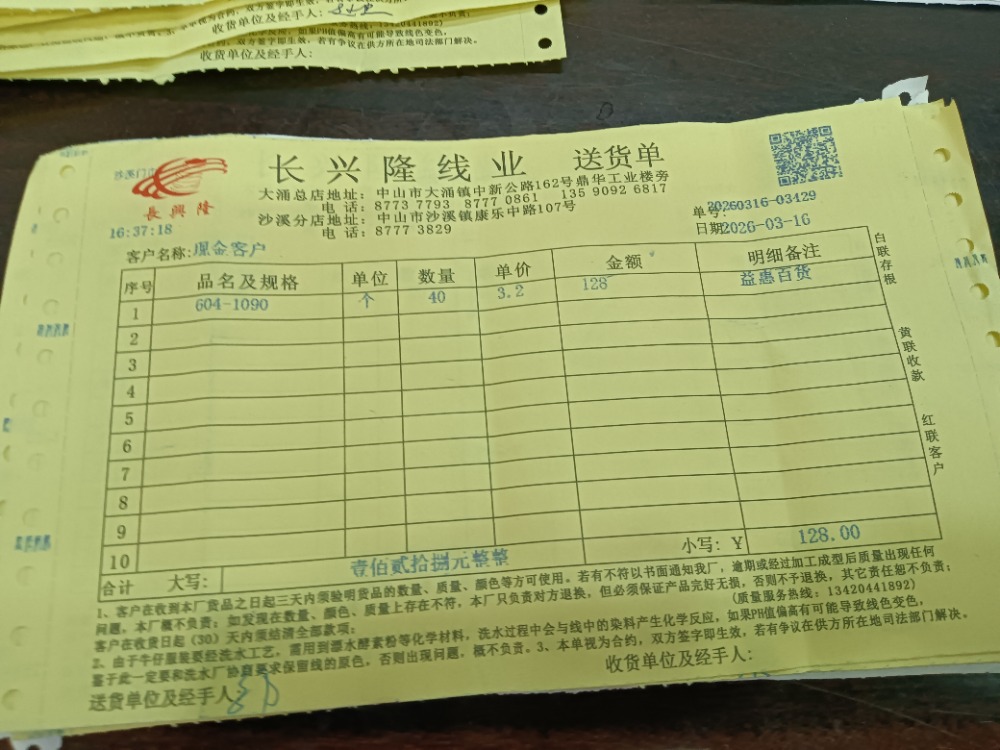 收货单位及经手人:
双方签字即生效，若有争议在供方所在地司法部门解决。
收货单位及经手人:
沙溪门市
長興隆
16:37:18
长兴隆线业 送货单
大涌总店地址: 中山市大涌镇中新公路162号鼎华工业楼旁
电 话: 8773 7793 8777 0861 135 9092 6817
沙溪分店地址: 中山市沙溪镇康乐中路107号
电 话: 8777 3829
单号: 20260316-03429
日期 2026-03-16
客户名称: 现金客户
序号 品名及规格 单位 数量 单价 金额 明细备注
1 604-1090 个 40 3.2 128 益惠百货
2
3
4
5
6
7
8
9
10
合计 大写: 壹佰贰拾捌元整整 小写: ¥ 128.00
白联存根
黄联收款
红联客户
1、客户在收到本厂货品之日起三天内须验明货品的数量、质量、颜色等方可使用。若有不符以书面通知我厂，逾期或经过加工成型后质量出现任何
问题，本厂概不负责: 如发现在数量、颜色、质量上存在不符，本厂只负责对方退换。但必须保证产品完好无损，否则不予退换，其它责任恕不负责;
客户在收货日起（30）天内须结清全部款项; (质量服务热线: 13420441892)
2、由于牛仔服装要经洗水工艺，需用到漂水酵素粉等化学材料，洗水过程中会与线中的染料产生化学反应，如果PH值偏高有可能导致线色变色，
鉴于此一定要和洗水厂协商要求保留线的原色，否则出现问题，概不负责。3、本单视为合约，双方签字即生效，若有争议在供方所在地司法部门解决。
送货单位及经手人: 收货单位及经手人: